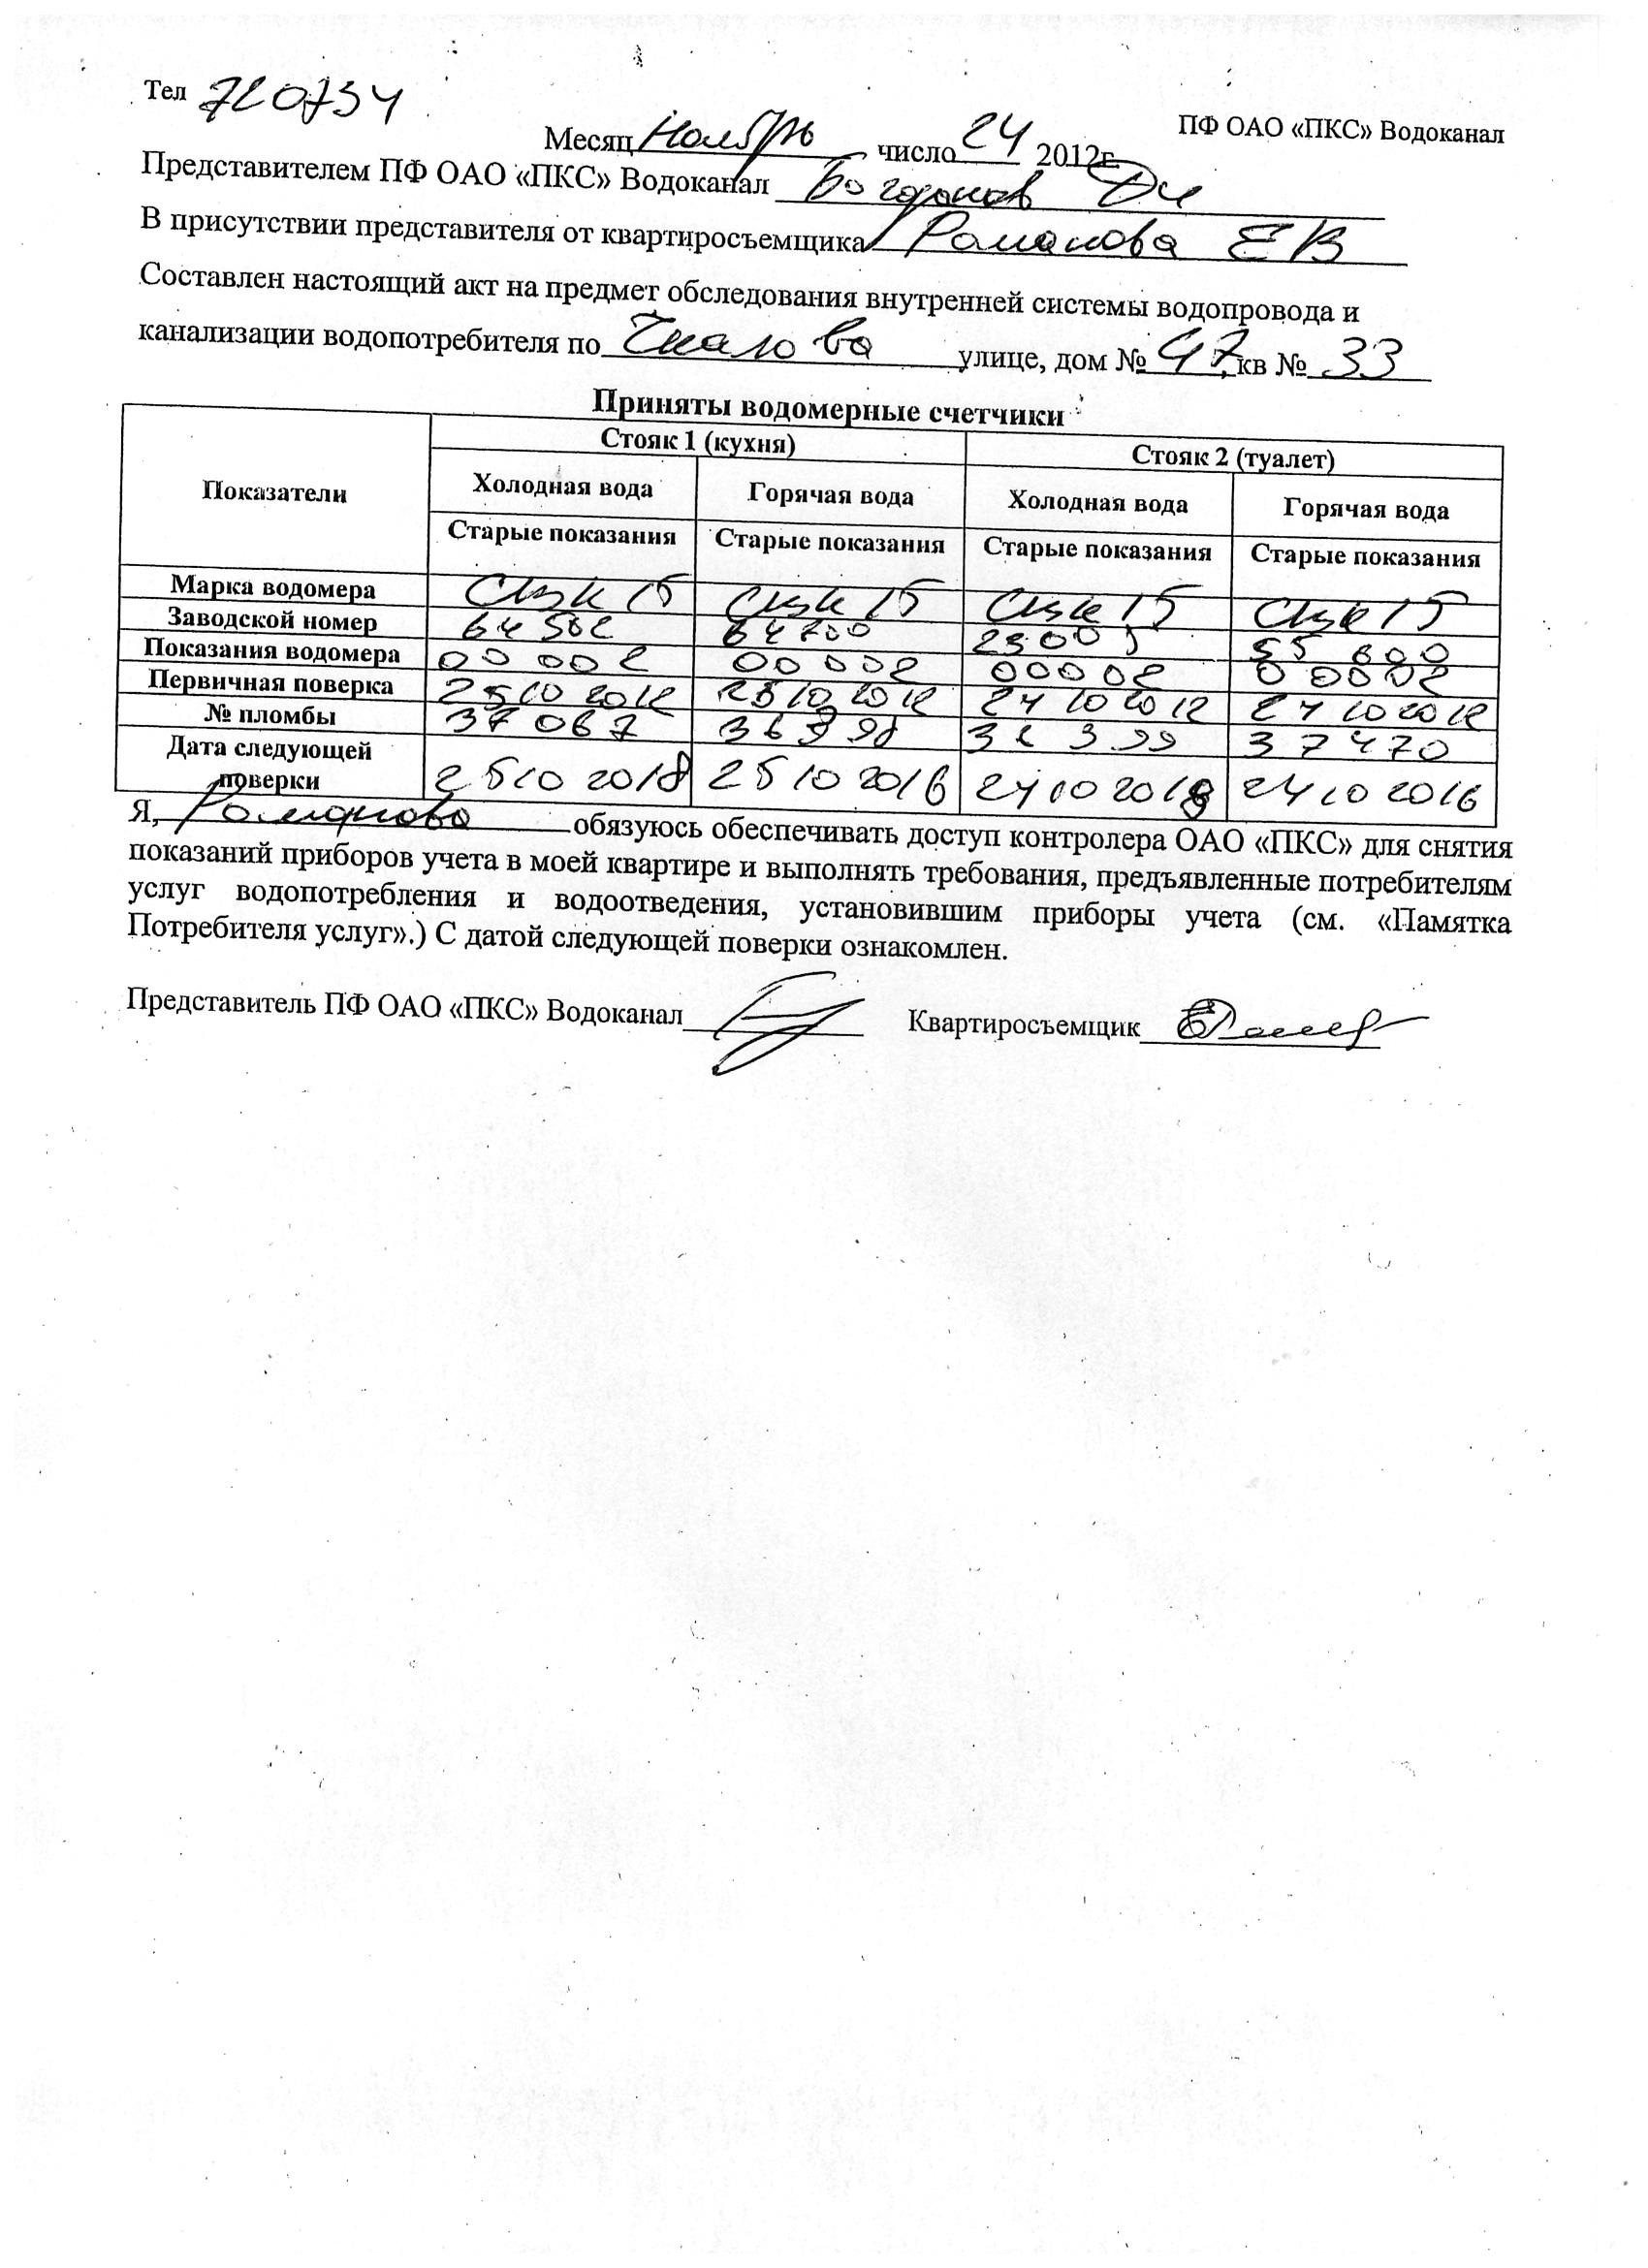 Тел 720734
ПФ ОАО «ПКС» Водоканал
Месяц Ноябрь число 24 2012г.
Представителем ПФ ОАО «ПКС» Водоканал Богданов
В присутствии представителя от квартиросъемщика Романова ЕВ
Составлен настоящий акт на предмет обследования внутренней системы водопровода и
канализации водопотребителя по Чкалова улице, дом № 47, кв № 33
Приняты водомерные счетчики
Показатели Стояк 1 (кухня) Стояк 2 (туалет)
Холодная вода Горячая вода Холодная вода Горячая вода
Старые показания Старые показания Старые показания Старые показания
Марка водомера СГВК 15 СГВК 15 СГВК 15 СГВК 15
Заводской номер 64502 64700 23005 55600
Показания водомера 00002 00002 00002 00002
Первичная поверка 25 10 2012 25 10 2012 24 10 2012 24 10 2012
№ пломбы 37067 36998 37470
Дата следующей
поверки 25 10 2018 25 10 2016 24 10 2018 24 10 2016
Я, Романова обязуюсь обеспечивать доступ контролера ОАО «ПКС» для снятия
показаний приборов учета в моей квартире и выполнять требования, предъявленные потребителям
услуг водопотребления и водоотведения, установившим приборы учета (см. «Памятка
Потребителя услуг».) С датой следующей поверки ознакомлен.
Представитель ПФ ОАО «ПКС» Водоканал Квартиросъемщик